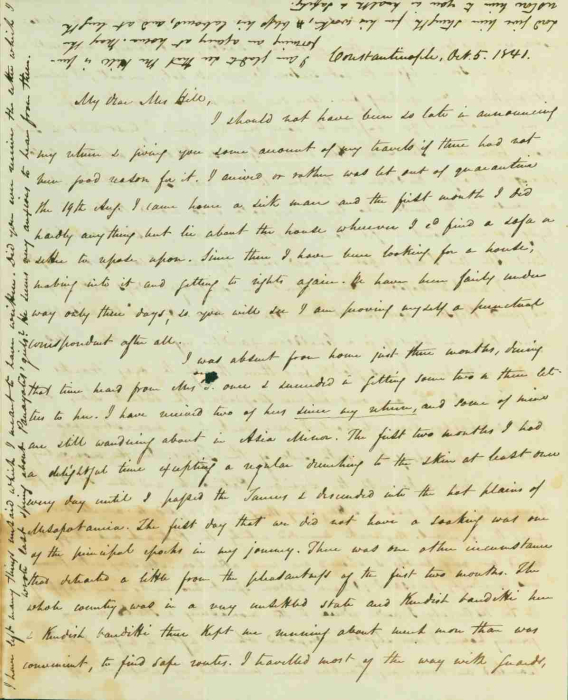 Constantinople, Oct. 5. 1841.
My Dear Mrs Hill,
I should not have been so late in announcing
my return & giving you some account of my travels if there had not
been good reason for it. I arrived or rather was let out of quarantine
the 19th Aug. I came home a sick man and the first month I did
hardly anything but lie about the house wherever I cd find a sofa or
settee to repose upon. Since then I have been looking for a house,
making into it and getting to rights again. We have been fairly under
way only three days, so you will see I am proving myself a punctual
correspondent after all.
I was absent from home just three months, during
that time heard from Mrs S. once & succeeded in getting some two or three let-
ters to her. I have received two of hers since my return, and some of mine
are still wandering about in Asia Minor. The first two months I had
a delightful time excepting a regular drenching to the skin at least once
every day until I passed the Taurus & descended into the hot plains of
Mesopotamia. The first day that we did not have a soaking was one
of the principal epochs in my journey. There was one other circumstance
that detracted a little from the pleasantness of the first two months. The
whole country was in a very unsettled state and Kurdish banditti here
& Kurdish banditti there kept me running about much more than was
convenient, to find safe routes. I travelled most of the way with guards,
I have left many things unsaid which I meant to have written. Did you ever receive the letter which I
wrote last spring about Panayotes' girls? He seems very anxious to hear from them.
I am glad to see that Mr Hill is
forming an apology at home. May the
Lord give him strength for his work, & bless his labours, and at length
return him to you in health & safety.